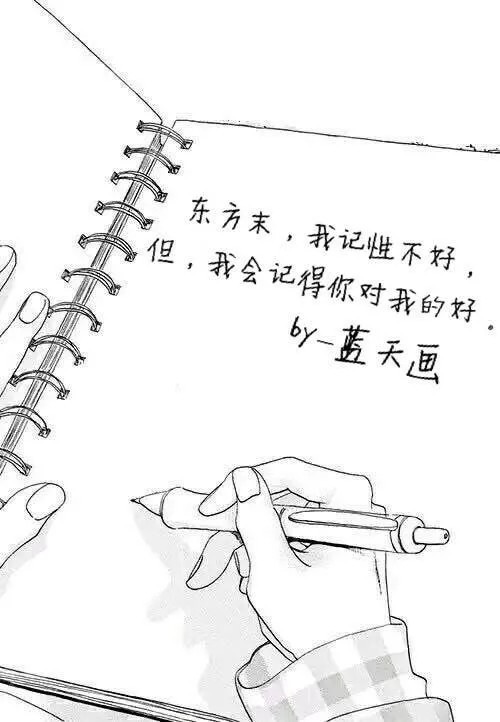 东方末，我记性不好，
但，我会记得你对我的好。
by-蓝天画